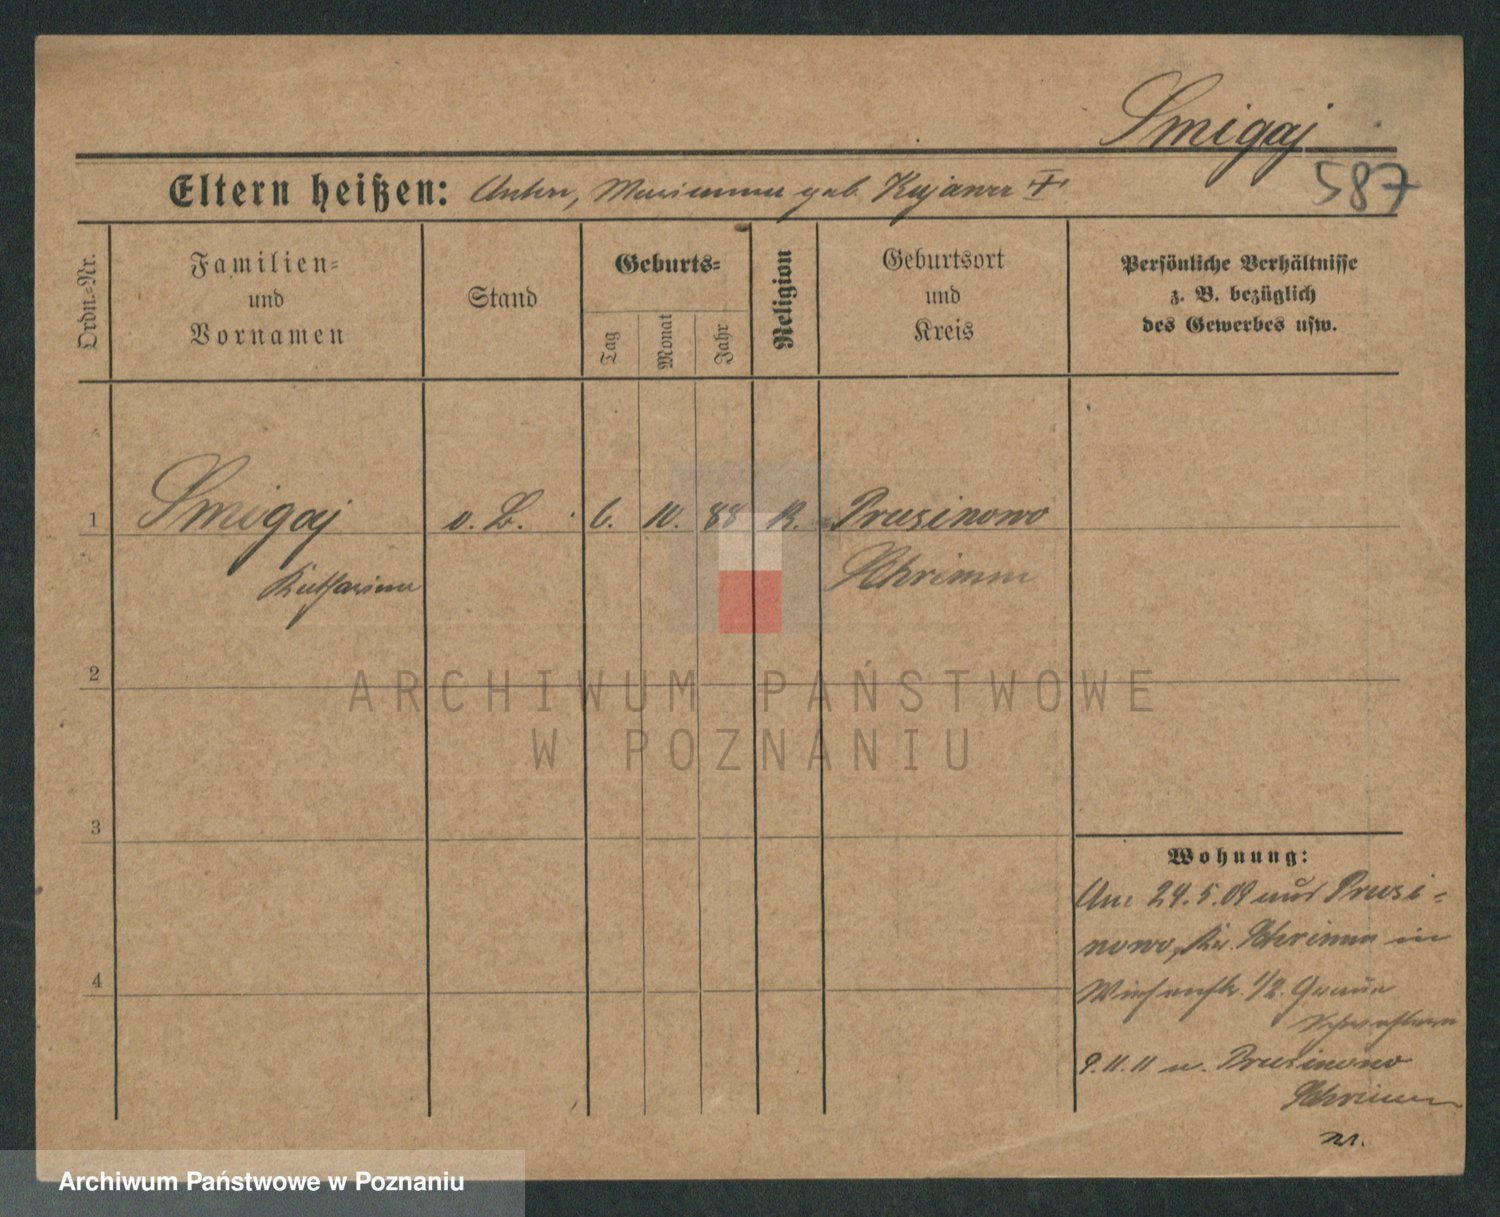 Smigaj
587
Eltern heißen: Anton, Marianna geb. Kujawa ✝
Ordn.-Nr.
Familien-
und
Vornamen
Stand
Geburts-
Tag
Monat
Jahr
Religion
Geburtsort
und
Kreis
Persönliche Verhältnisse
z. B. bezüglich
des Gewerbes usw.
1 Smigaj o. B. 6. 10. 88 R. Prusinowo
Katharina Schrimm
2
ARCHIWUM PAŃSTWOWE
W POZNANIU
3
Wohnung:
Am 24.5.09 aus Prusi-
nowo, Kr. Schrimm in
Wiesenstr. 1/2. Graue
Schwestern
9.11.11 n. Prusinowo
Schrimm
4
Archiwum Państwowe w Poznaniu